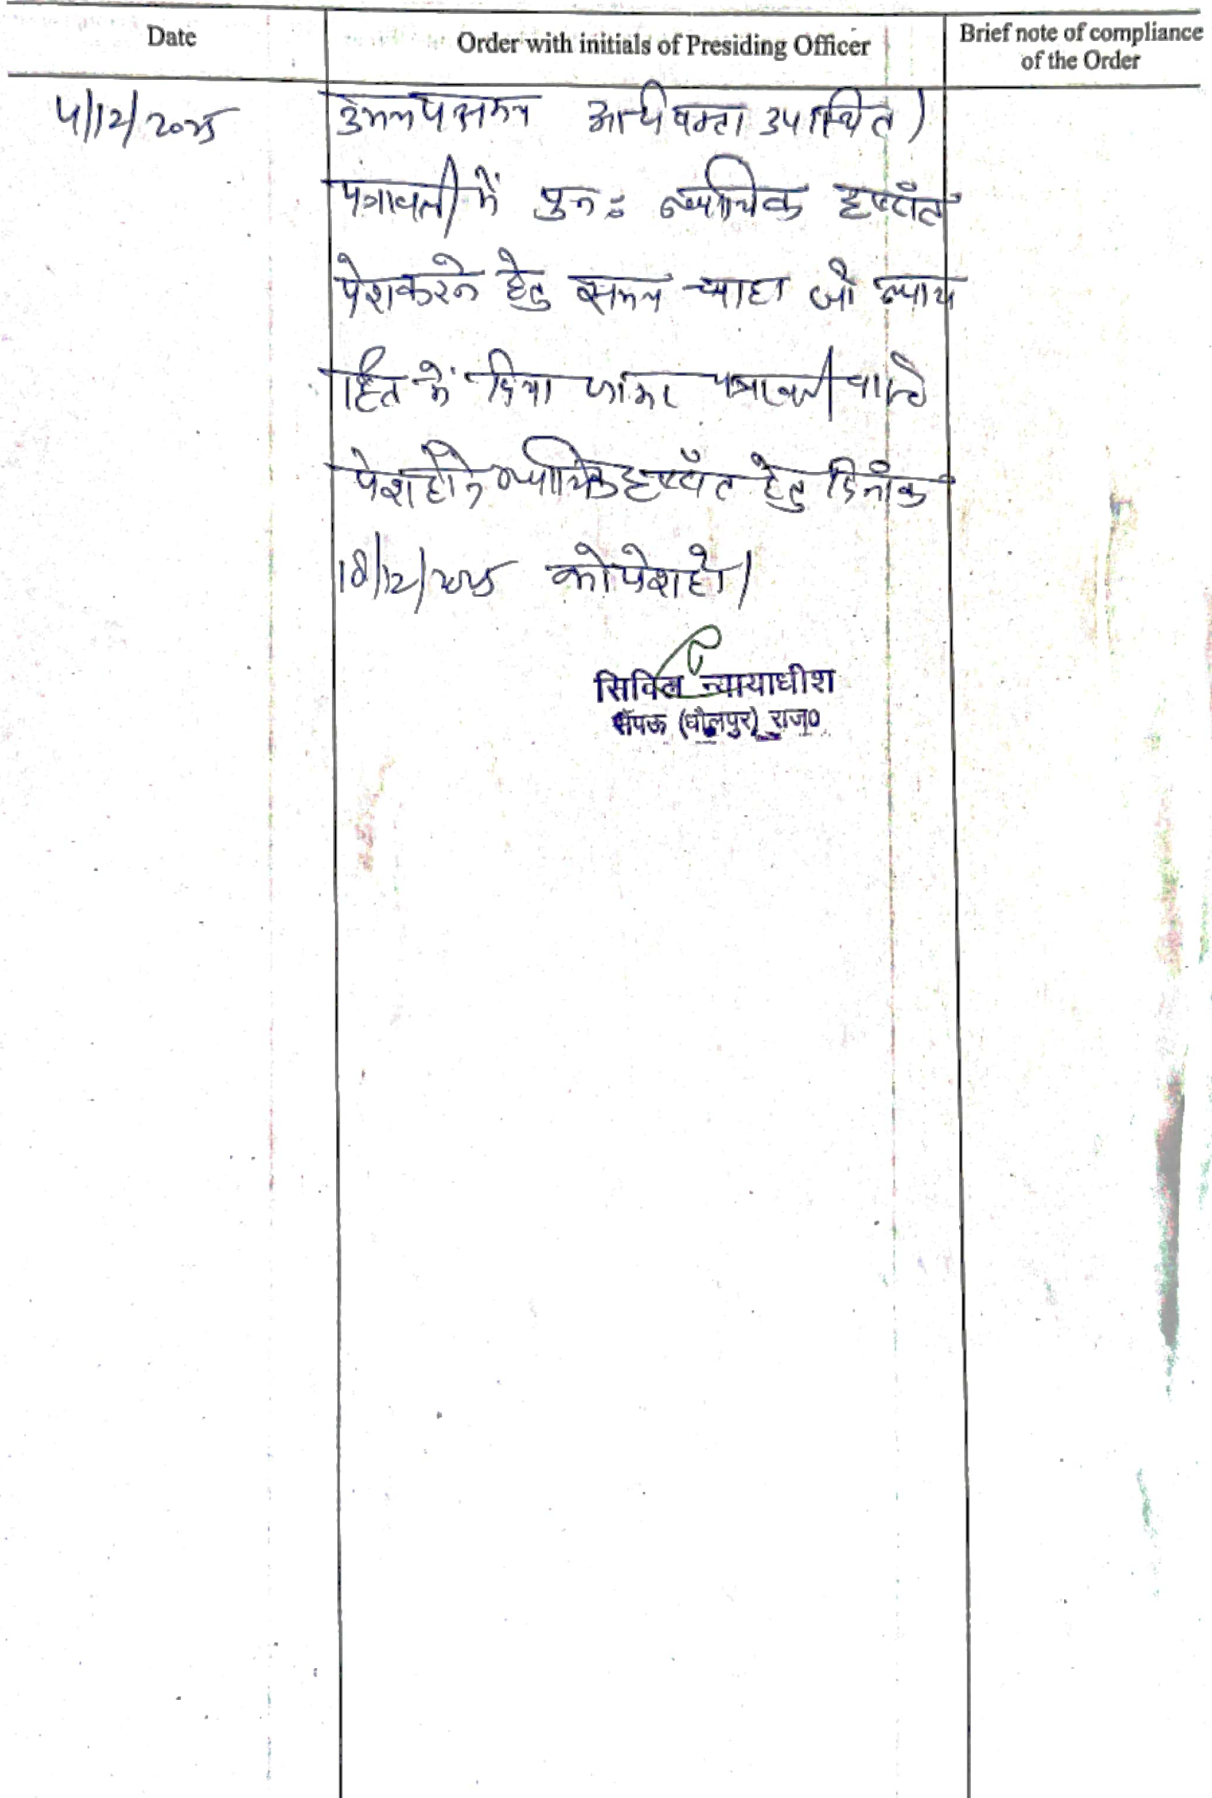 Date
Order with initials of Presiding Officer
Brief note of compliance
of the Order
4/12/2025
उभयपक्षमय अधिवक्ता उपस्थित।
पत्रावली में पुनः न्यायिक दृष्टांत
पेश करने हेतु समय चाहा जो न्याय
हित में दिया जाकर पत्रावली वास्ते
पेश होने न्यायिक दृष्टांत हेतु दिनांक
18/12/2025 को पेश हो।
सिविल न्यायाधीश
सैंपऊ (धौलपुर) राज०